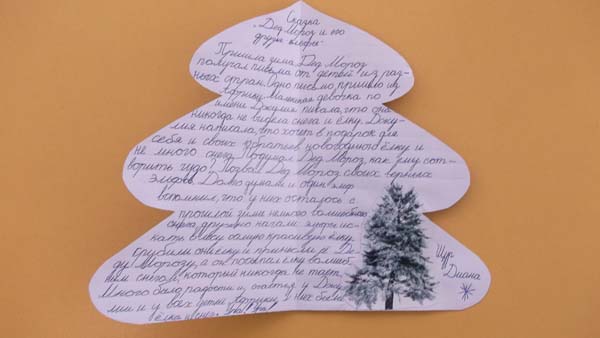 Сказка
„Дед Мороз и его
друзья эльфы"
Пришла зима. Дед Мороз
получал письма от детей из раз-
ных стран. Одно письмо пришло из
Африки. Маленькая девочка по
имени Джулия писала, что она
никогда не видела снега и ёлку. Джу-
лия написала, что хочет в подарок для
себя и своих братьев новогоднюю ёлку и
не много снега. Подумал Дед Мороз, как ему сот-
ворить чудо. Позвал Дед Мороз своих верных
эльфов. Долго думали и один эльф
вспомнил, что у них осталось с
прошлой зимы немного волшебного
снега. дружно начали эльфы ис-
кать в лесу самую красивую ёлку.
срубили они ёлку и принесли её Де-
ду Морозу, а он посыпал ёлку волшеб-
ным снегом, который никогда не тает.
Много было радости и счастья у Джу-
лии и у всех детей Африки, у них была
ёлка и снег. Ура! Ура!
Щур
Диана